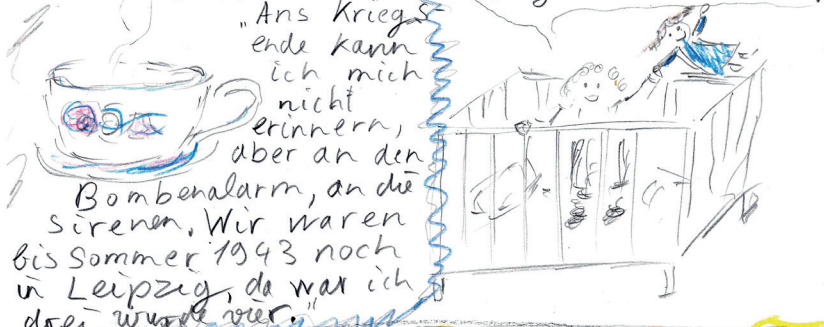 „Ans Kriegs-
ende kann
ich mich
nicht
erinnern,
aber an den
Bombenalarm, an die
Sirenen. Wir waren
bis Sommer 1943 noch
in Leipzig, da war ich
drei wurde vier."